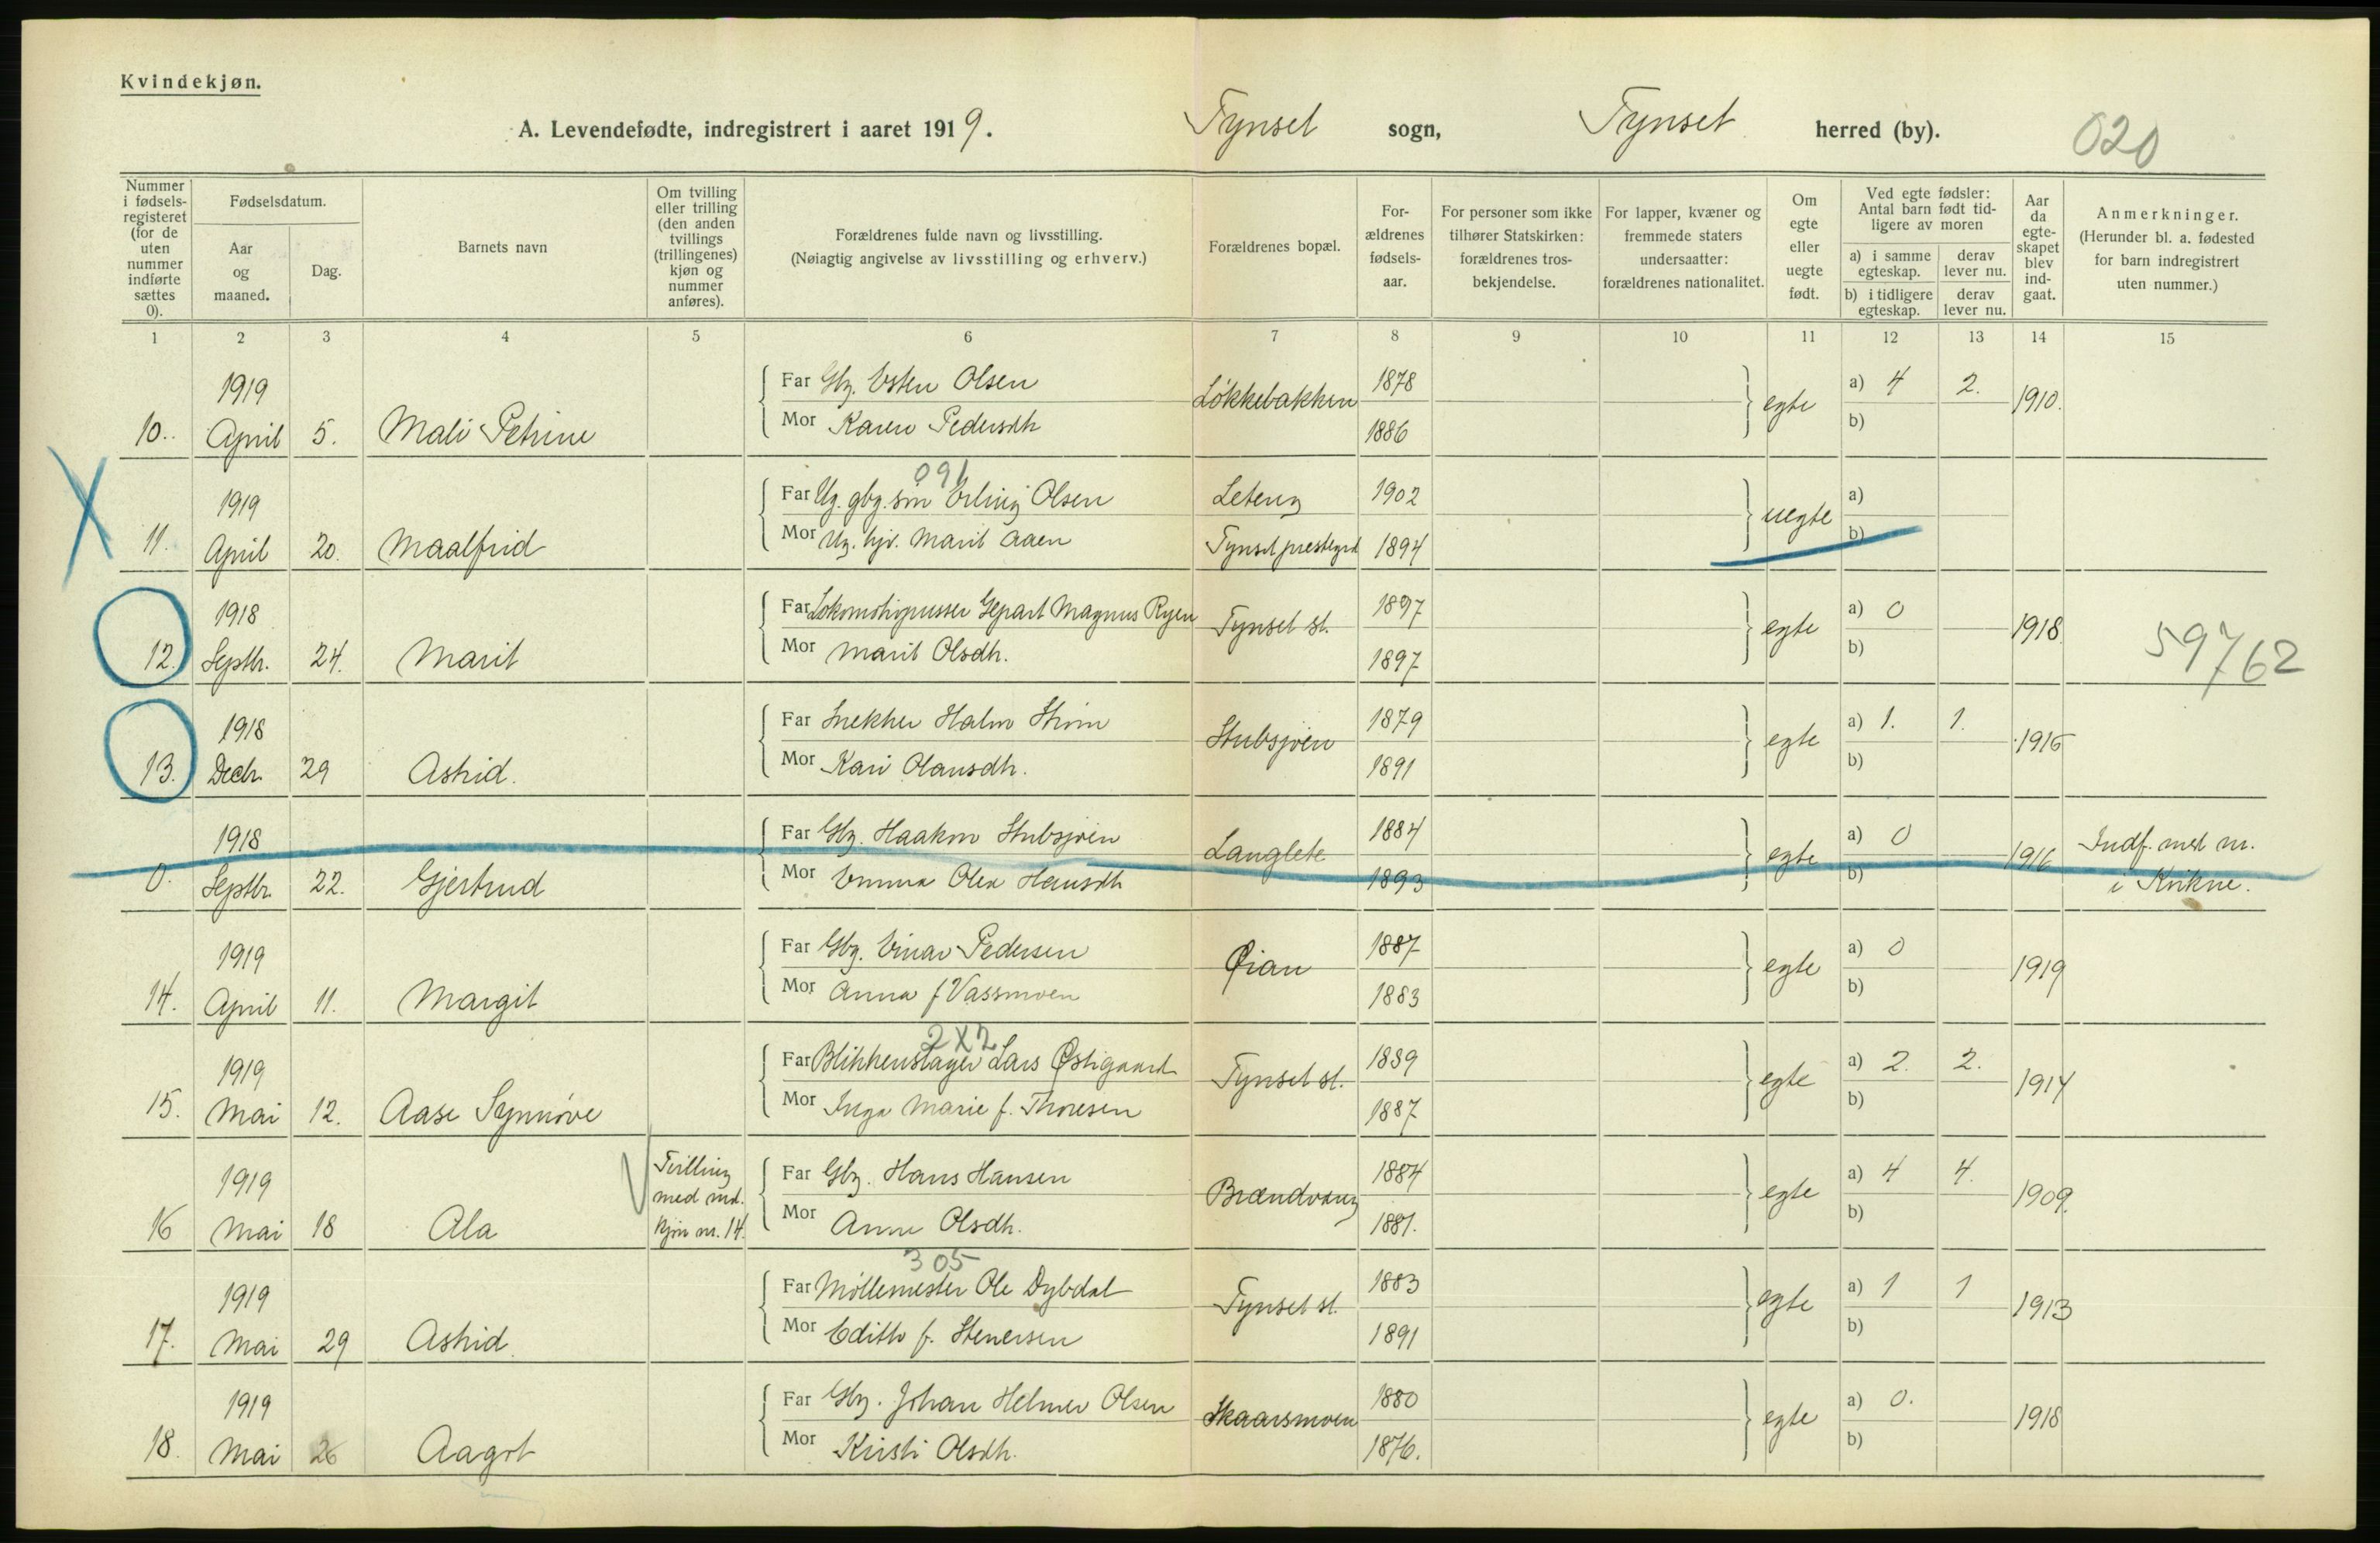 Kvindekjøn.
A. Levendefødte, indregistrert i aaret 1919. Tynset sogn, Tynset herred (by). 020
Nummer i fødselsregisteret (for de uten nummer indførte sættes 0).
Fødselsdatum.
Aar og maaned.
Dag.
Barnets navn
Om tvilling eller trilling (den anden tvillings (trillingenes) kjøn og nummer anføres).
Forældrenes fulde navn og livsstilling.
(Nøiagtig angivelse av livsstilling og erhverv.)
Forældrenes bopæl.
For-ældrenes fødsels-aar.
For personer som ikke tilhører Statskirken: forældrenes tros-bekjendelse.
For lapper, kvæner og fremmede staters undersaatter: forældrenes nationalitet.
Om egte eller uegte født.
Ved egte fødsler: Antal barn født tid-ligere av moren
a) i samme egteskap. derav lever nu.
b) i tidligere egteskap. derav lever nu.
Aar da egte-skapet blev ind-gaat.
Anmerkninger.
(Herunder bl. a. fødested for barn indregistrert uten nummer.)
1 2 3 4 5 6 7 8 9 10 11 12 13 14 15
1919 Far Gbr. Esten Olsen Løkkebakken 1878 egte a) 4 2. 1910.
10. April 5. Mali Petrine Mor Karen Pedersdtr 1886 b)
091
1919 Far Ug. gbr. søn Erling Olsen Leteng 1902 uegte a)
11. April 20. Maalfrid Mor Ug. hjv. Marit Aaen Tynset prestegrd 1894 b)
1918 Far Lokomotivpusser Gepart Magnus Ryen Tynset st. 1897 egte a) 0 1918.
12. Septbr. 24. Marit Mor Marit Olsdtr. 1897 b) 59762
1918 Far Snekker Halvor Strøm Stubsjøen 1879 egte a) 1. 1. 1916
13. Decbr. 29 Astrid. Mor Kari Olausdtr. 1891 b)
1918 Far Gbr. Haakon Stubsjøen Langlete 1884 egte a) 0 1916 Indf. med nr.
0. Septbr. 22. Gjertrud Mor Emma Olea Hansdtr 1893 b) i Kvikne.
1919 Far Gbr. Einar Pedersen Øian 1887 egte a) 0 1919
14. April 11. Margit Mor Anna f Vassmoen 1883 b)
2X2
1919 Far Blikkenslager Lars Østigaard Tynset st. 1889 egte a) 2. 2. 1914
15. Mai 12. Aase Synnøve Mor Inga Marie f. Thoresen 1887 b)
1919 Tvilling med md. kjøn nr. 14. Far Gbr. Hans Hansen Brændvang 1884 egte a) 4 4. 1909.
16 Mai 18 Ala Mor Anne Olsdtr. 1881. b)
305
1919 Far Møllemester Ole Dybdal Tynset st. 1883 egte a) 1 1 1913
17. Mai 29 Astrid. Mor Edith f. Stenersen 1891 b)
1919 Far Gbr. Johan Helmer Olsen Skaarsmoen 1880 egte a) 0. 1918
18. Mai 26 Aagot Mor Kirsti Olsdtr. 1876. b)